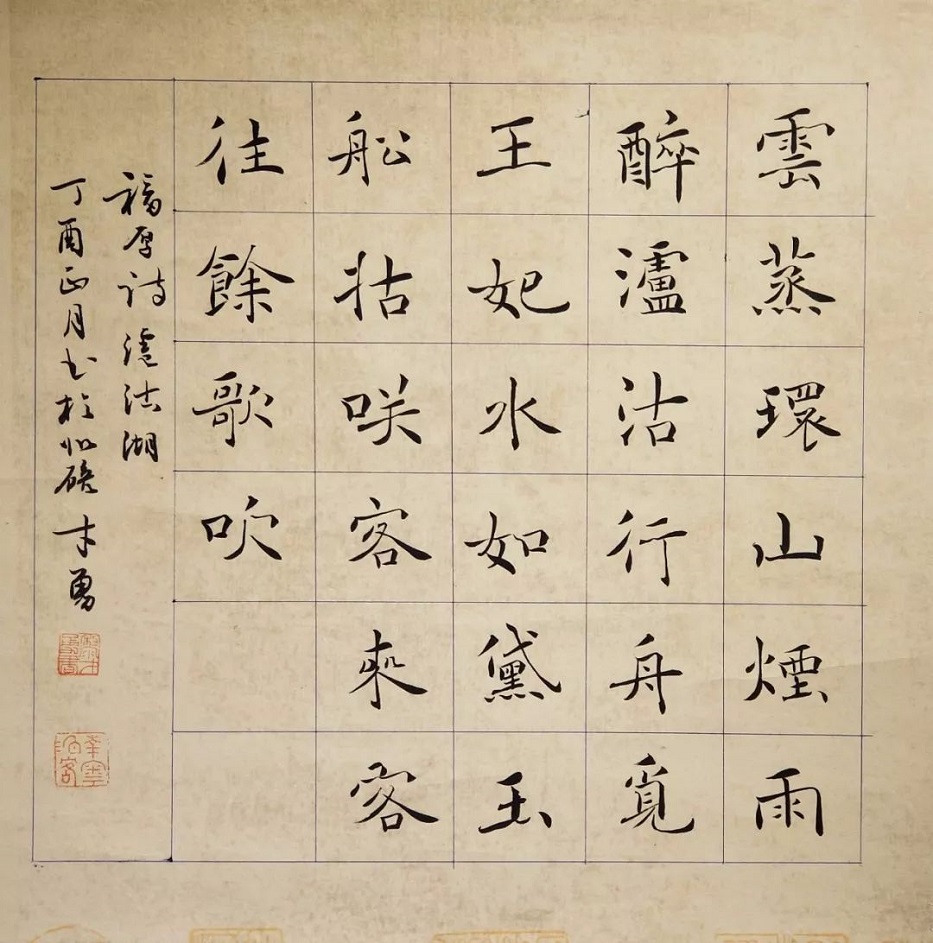 雲蒸環山煙雨
醉瀘沽行舟覓
王妃水如黛玉
船牯咲客來客
往餘歌吹
福厚詩瀘沽湖
丁酉正月书於北碚才勇